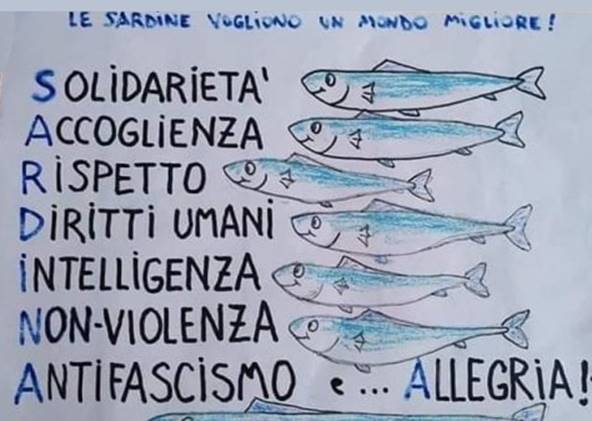 LE SARDINE VOGLIONO UN MONDO MIGLIORE!
SOLIDARIETA'
ACCOGLIENZA
RISPETTO
DIRITTI UMANI
INTELLIGENZA
NON-VIOLENZA
ANTIFASCISMO e ... ALLEGRIA!